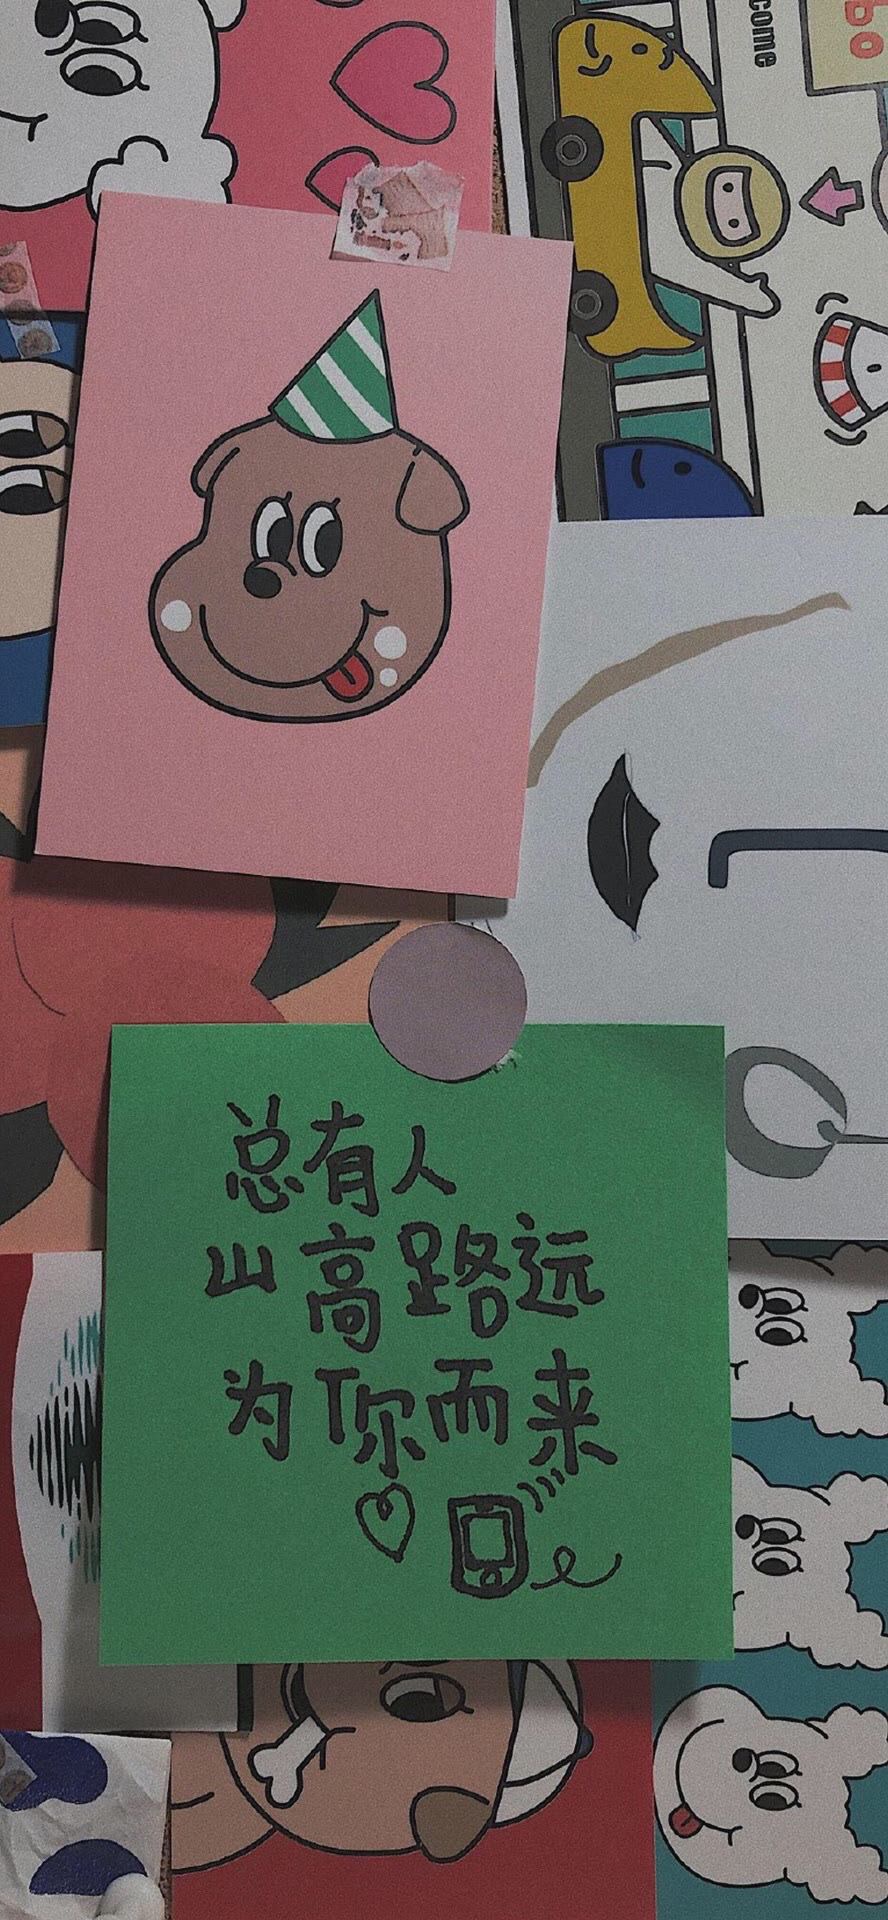 come
总有人
山高路远
为你而来